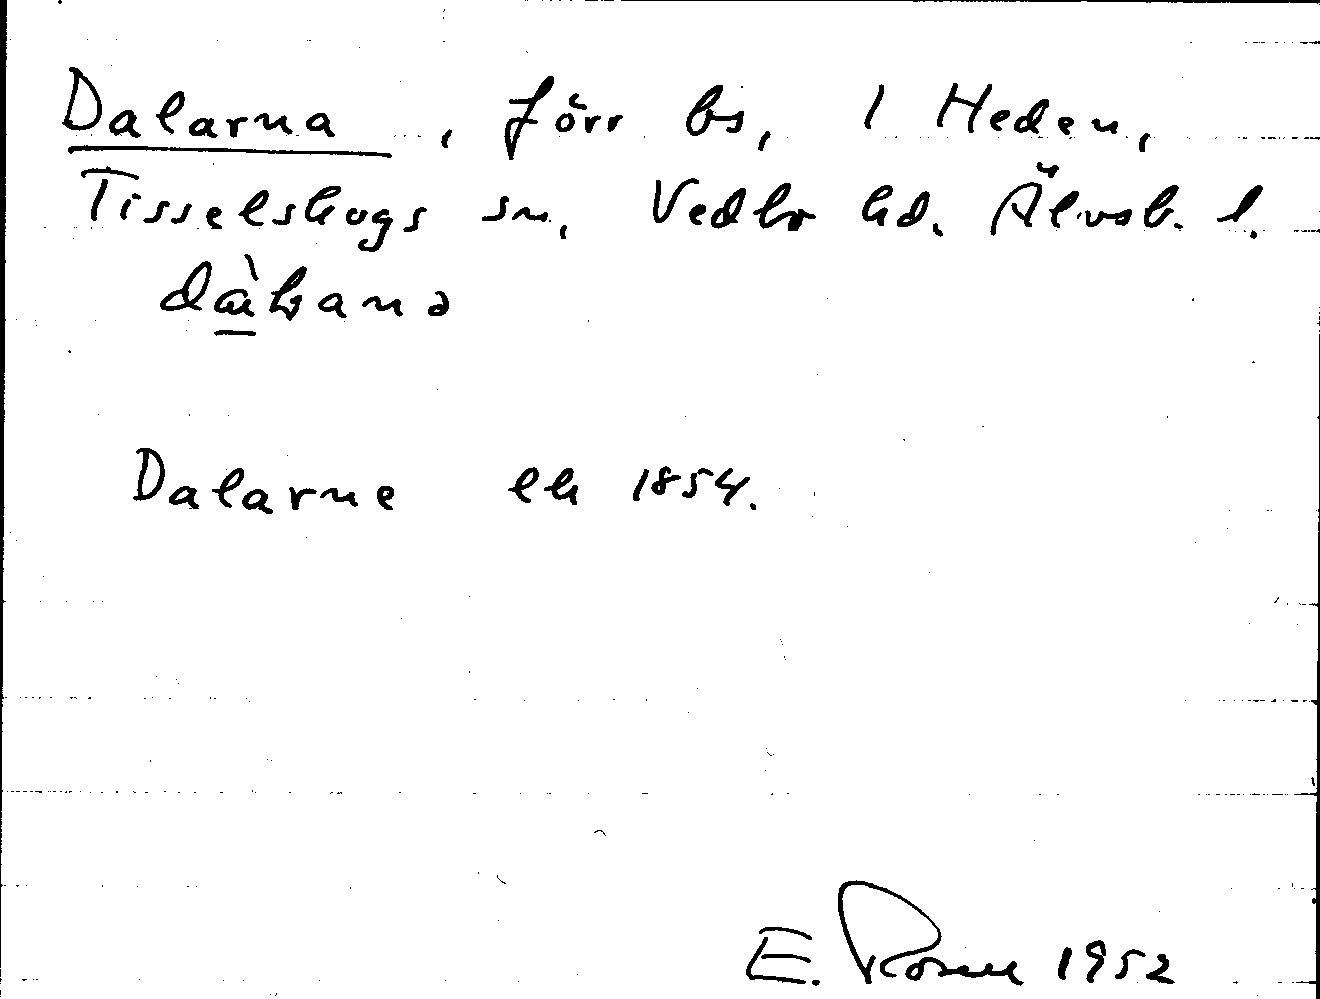 Dalarna, förr bs, 1 Heden,
Tisselskogs sn, Vedbo hd. Älvsb. l.
Dalarne ek 1854.
E. Rosell 1952